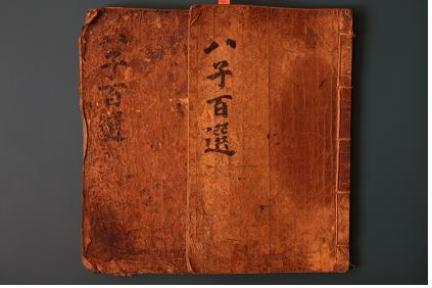 八子百選
八子百選